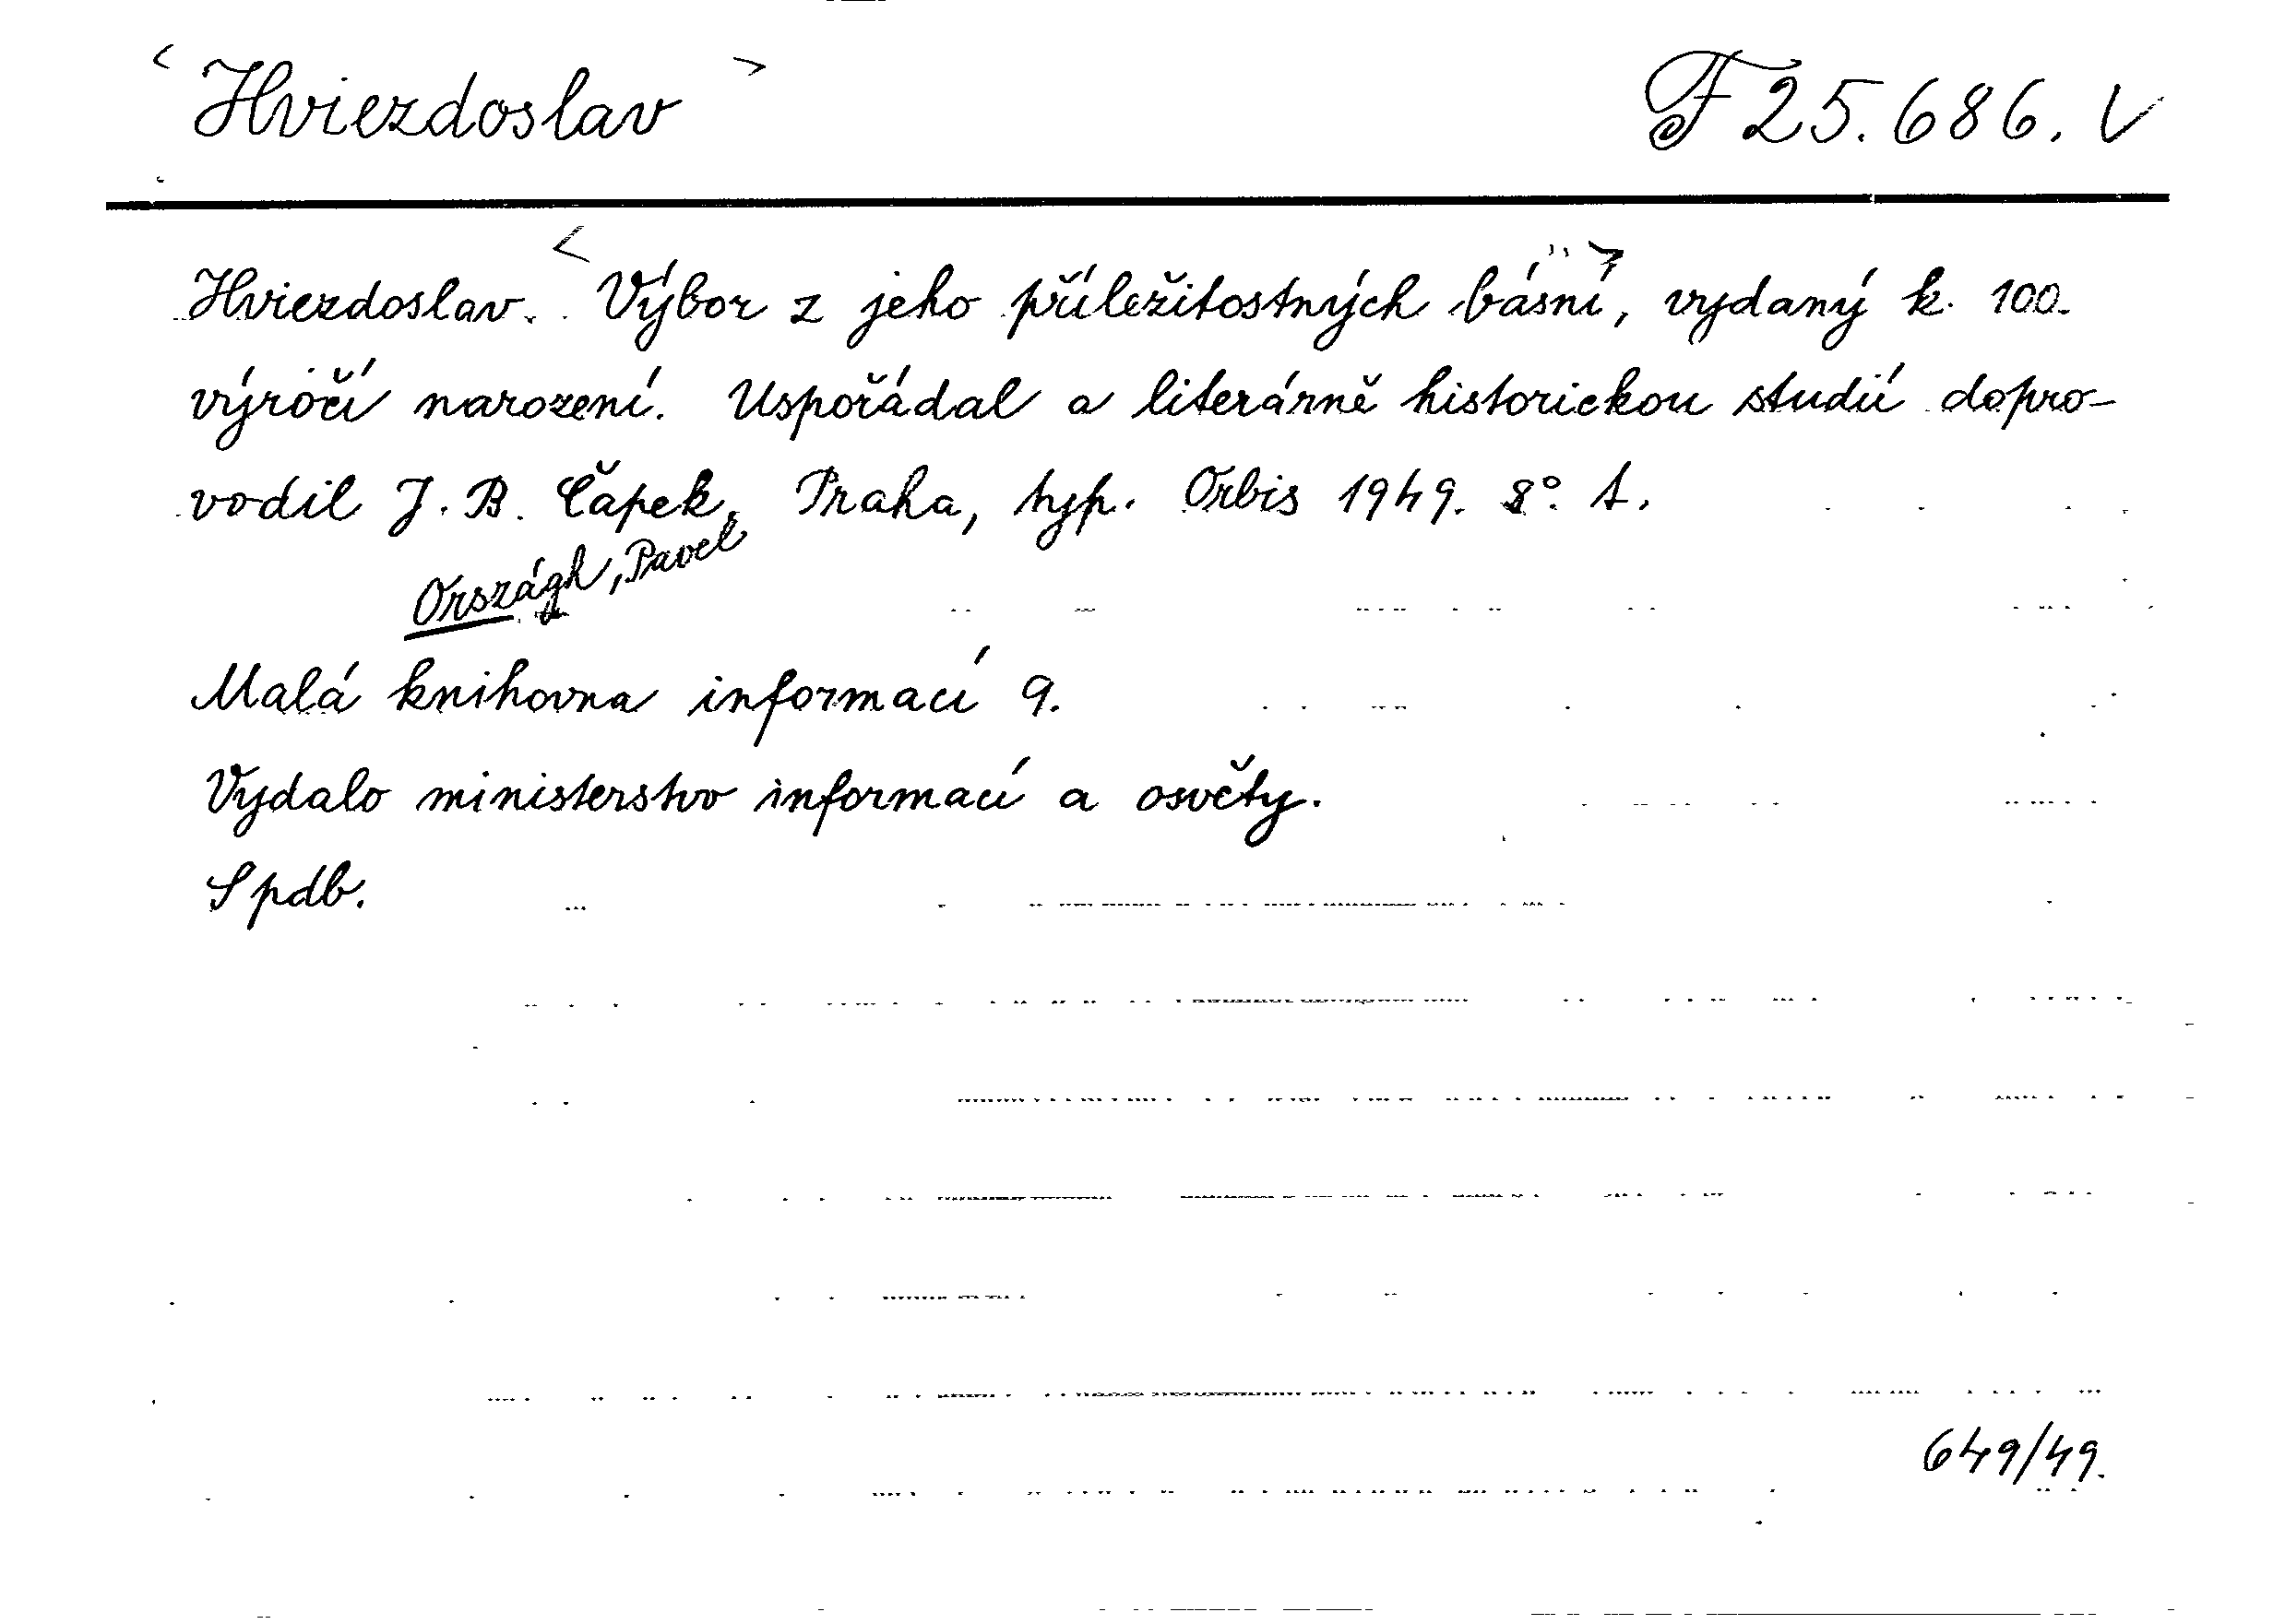 < Hviezdoslav >
F 25.686. V
Hviezdoslav. < Výbor z jeho příležitostných básní", > vydaný k. 100.
výročí narození. Uspořádal a literárně historickou studií dopro-
vodil J. B. Čapek, Praha, typ. Orbis 1949. 8°. 1.
Országh, Pavel
Malá knihovna informací 9.
Vydalo ministerstvo informací a osvěty.
Spdb.
649/49.